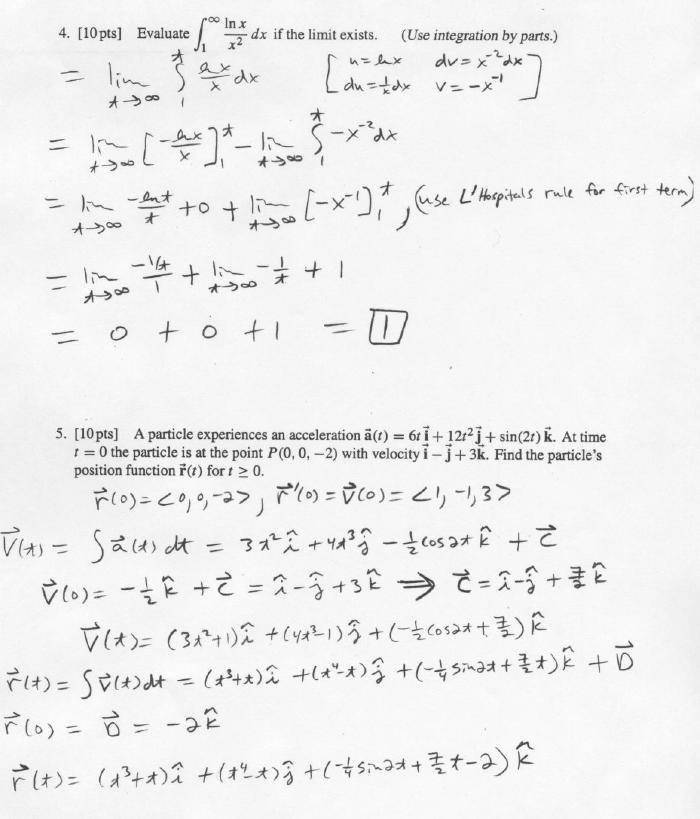 4. [10pts] Evaluate ∫₁^∞ ln x / x² dx if the limit exists. (Use integration by parts.)
= lim t→∞ ∫₁^t ln x / x dx [ u = ln x dv = x⁻² dx
du = 1/x dx v = -x⁻¹ ]
= lim t→∞ [ -ln x / x ]₁^t - lim t→∞ ∫₁^t -x⁻² dx
= lim t→∞ -ln t / t + 0 + lim t→∞ [-x⁻¹]₁^t , (use L'Hospitals rule for first term)
= lim t→∞ -1/t / 1 + lim t→∞ - 1/t + 1
= 0 + 0 + 1 = 1
5. [10pts] A particle experiences an acceleration a⃗(t) = 6t i⃗ + 12t² j⃗ + sin(2t) k⃗. At time
t = 0 the particle is at the point P(0, 0, −2) with velocity i⃗ − j⃗ + 3k⃗. Find the particle's
position function r⃗(t) for t ≥ 0.
r⃗(0) = <0, 0, -2> , r⃗'(0) = v⃗(0) = <1, -1, 3>
v⃗(t) = ∫ a⃗(t) dt = 3t² î + 4t³ ĵ - 1/2 cos 2t k̂ + c⃗
v⃗(0) = -1/2 k̂ + c⃗ = î - ĵ + 3 k̂ ⇒ c⃗ = î - ĵ + 7/2 k̂
v⃗(t) = (3t²+1) î + (4t³-1) ĵ + (-1/2 cos 2t + 7/2) k̂
r⃗(t) = ∫ v⃗(t) dt = (t³+t) î + (t⁴-t) ĵ + (-1/4 sin 2t + 7/2 t) k̂ + D⃗
r⃗(0) = D⃗ = -2 k̂
r⃗(t) = (t³+t) î + (t⁴-t) ĵ + (-1/4 sin 2t + 7/2 t - 2) k̂